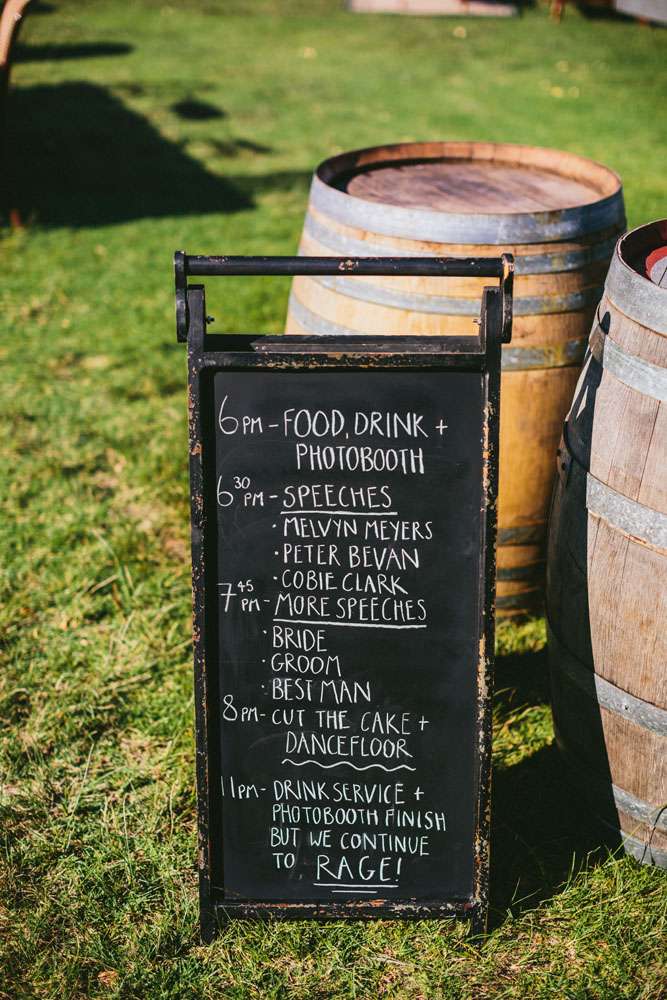 6PM - FOOD, DRINK +
PHOTOBOOTH
6³⁰PM - SPEECHES
· MELVYN MEYERS
· PETER BEVAN
· COBIE CLARK
7⁴⁵PM - MORE SPEECHES
· BRIDE
· GROOM
· BEST MAN
8PM - CUT THE CAKE +
DANCEFLOOR
11PM - DRINK SERVICE +
PHOTOBOOTH FINISH
BUT WE CONTINUE
TO RAGE!